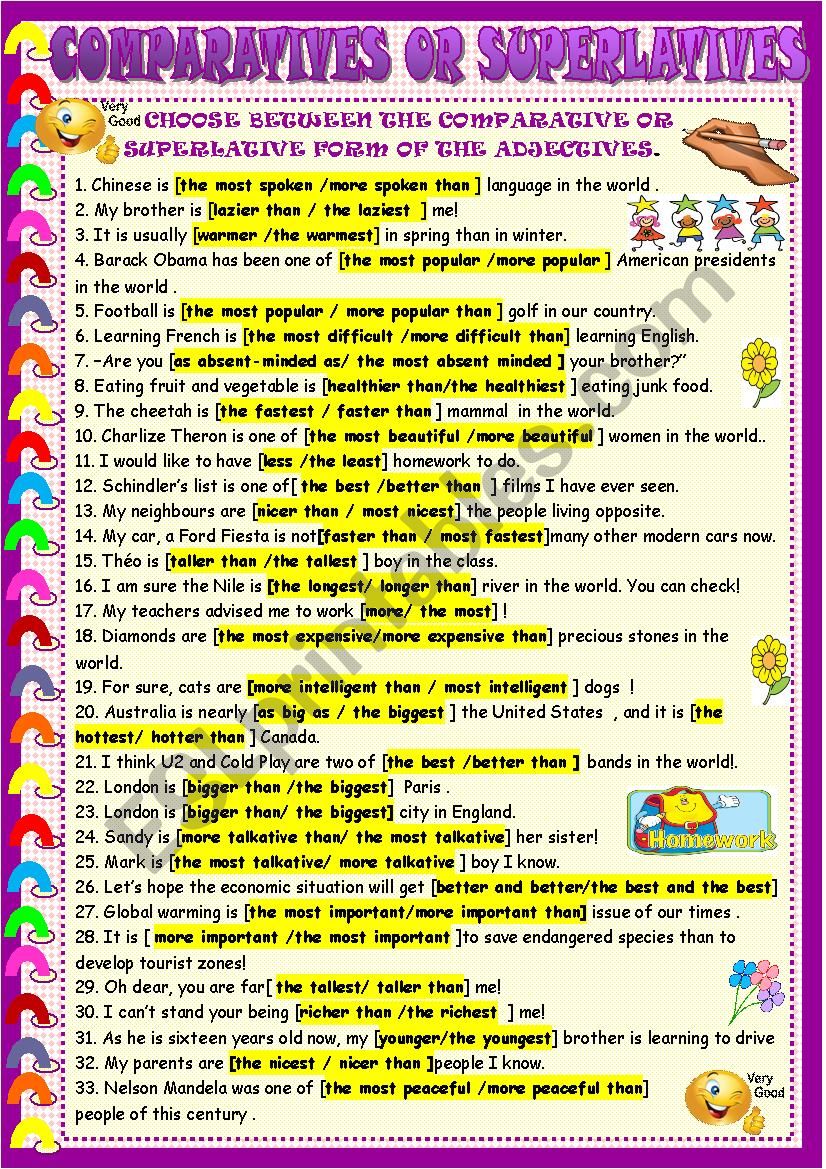 COMPARATIVES OR SUPERLATIVES
Very
Good
CHOOSE BETWEEN THE COMPARATIVE OR
SUPERLATIVE FORM OF THE ADJECTIVES.
1. Chinese is [the most spoken /more spoken than ] language in the world .
2. My brother is [lazier than / the laziest ] me!
3. It is usually [warmer /the warmest] in spring than in winter.
4. Barack Obama has been one of [the most popular /more popular ] American presidents
in the world .
5. Football is [the most popular / more popular than ] golf in our country.
6. Learning French is [the most difficult /more difficult than] learning English.
7. –Are you [as absent-minded as/ the most absent minded ] your brother?”
8. Eating fruit and vegetable is [healthier than/the healthiest ] eating junk food.
9. The cheetah is [the fastest / faster than ] mammal in the world.
10. Charlize Theron is one of [the most beautiful /more beautiful ] women in the world..
11. I would like to have [less /the least] homework to do.
12. Schindler’s list is one of[ the best /better than ] films I have ever seen.
13. My neighbours are [nicer than / most nicest] the people living opposite.
14. My car, a Ford Fiesta is not[faster than / most fastest]many other modern cars now.
15. Théo is [taller than /the tallest ] boy in the class.
16. I am sure the Nile is [the longest/ longer than] river in the world. You can check!
17. My teachers advised me to work [more/ the most] !
18. Diamonds are [the most expensive/more expensive than] precious stones in the
world.
19. For sure, cats are [more intelligent than / most intelligent ] dogs !
20. Australia is nearly [as big as / the biggest ] the United States , and it is [the
hottest/ hotter than ] Canada.
21. I think U2 and Cold Play are two of [the best /better than ] bands in the world!.
22. London is [bigger than /the biggest] Paris .
23. London is [bigger than/ the biggest] city in England.
24. Sandy is [more talkative than/ the most talkative] her sister!
25. Mark is [the most talkative/ more talkative ] boy I know.
Homework
26. Let’s hope the economic situation will get [better and better/the best and the best]
27. Global warming is [the most important/more important than] issue of our times .
28. It is [ more important /the most important ]to save endangered species than to
develop tourist zones!
29. Oh dear, you are far[ the tallest/ taller than] me!
30. I can’t stand your being [richer than /the richest ] me!
31. As he is sixteen years old now, my [younger/the youngest] brother is learning to drive
32. My parents are [the nicest / nicer than ]people I know.
33. Nelson Mandela was one of [the most peaceful /more peaceful than]
people of this century .
Very
Good
ESLprintables.com